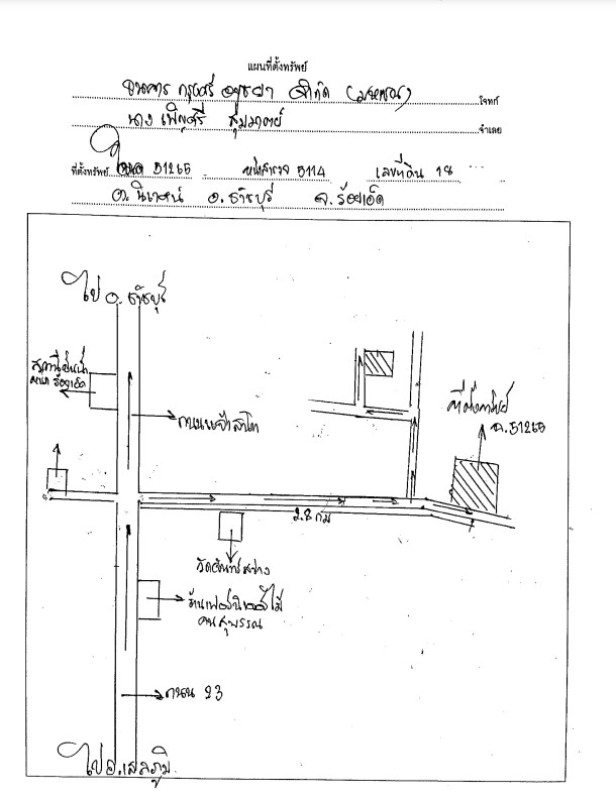 แผนที่ตั้งทรัพย์
ธนาคาร กรุงศรี อยุธยา จำกัด (มหาชน) โจทก์
นาง เพ็ญศรี จำเลย
ที่ตั้งทรัพย์ โฉนด 51265 หน้าสำรวจ 5114 เลขที่ดิน 18
ต. นิเวศน์ อ. ธวัชบุรี จ. ร้อยเอ็ด
ไป อ. ธวัชบุรี
ถนนแจ้งสนิท
ที่ตั้งทรัพย์
ฉ. 51265
2.8 กม
วัดจันทร์สว่าง
ร้านเฟอร์นิเจอร์ไม้
คนสุพรรณ
ถนน 23
ไป อ. เสลภูมิ